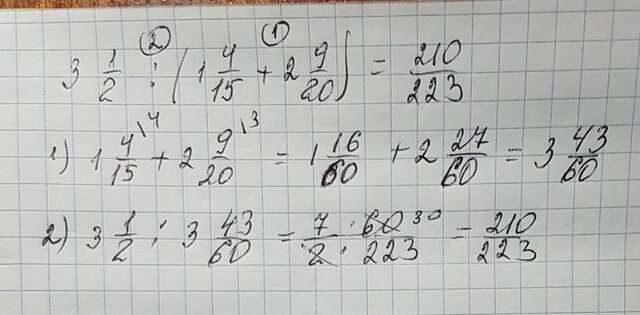 ② ①
3 1/2 : (1 4/15 + 2 9/20) = 210/223
1) 1 4/15 \4 + 2 9/20 \3 = 1 16/60 + 2 27/60 = 3 43/60
2) 3 1/2 : 3 43/60 = 7/2 · 60 30/223 = 210/223